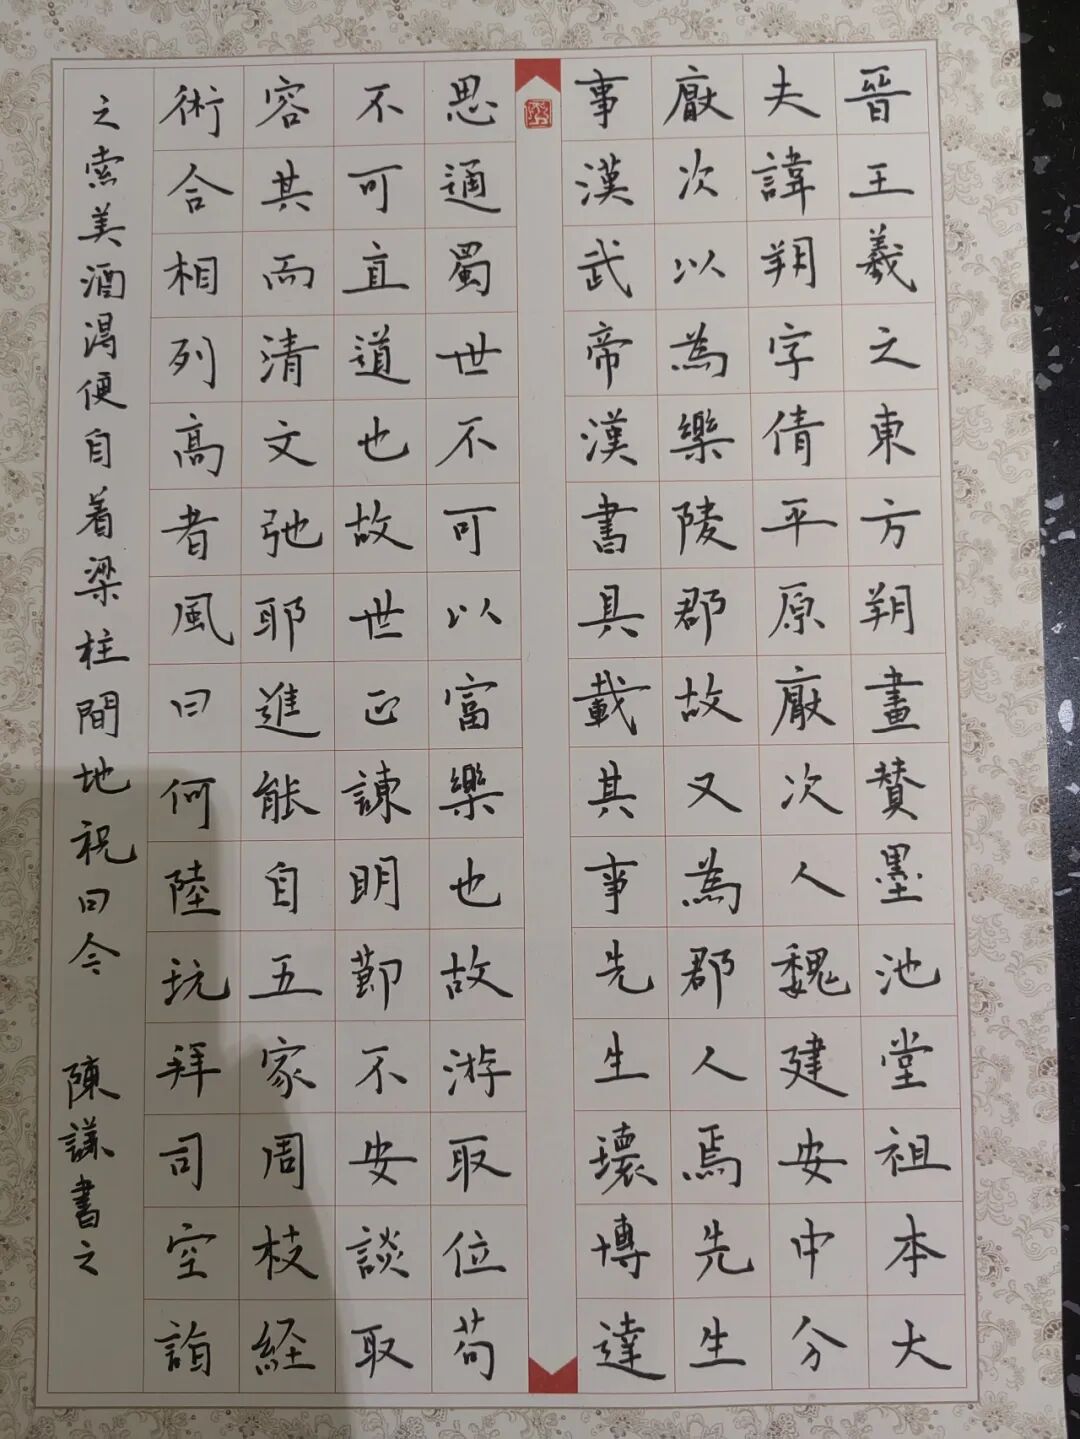 晉王羲之東方朔畫贊墨池堂祖本大
夫諱朔字倩平原厭次人魏建安中分
厭次以為樂陵郡故又為郡人焉先生
事漢武帝漢書具載其事先生壞博達
思通蜀世不可以富樂也故游取位苟
不可直道也故世正諫明節不安談取
容其而清文弛耶進能自五家周枝経
術合相列高者風曰何陸玩拜司空詣
之索美酒得便自着梁柱間地祝曰今
陳謙書之